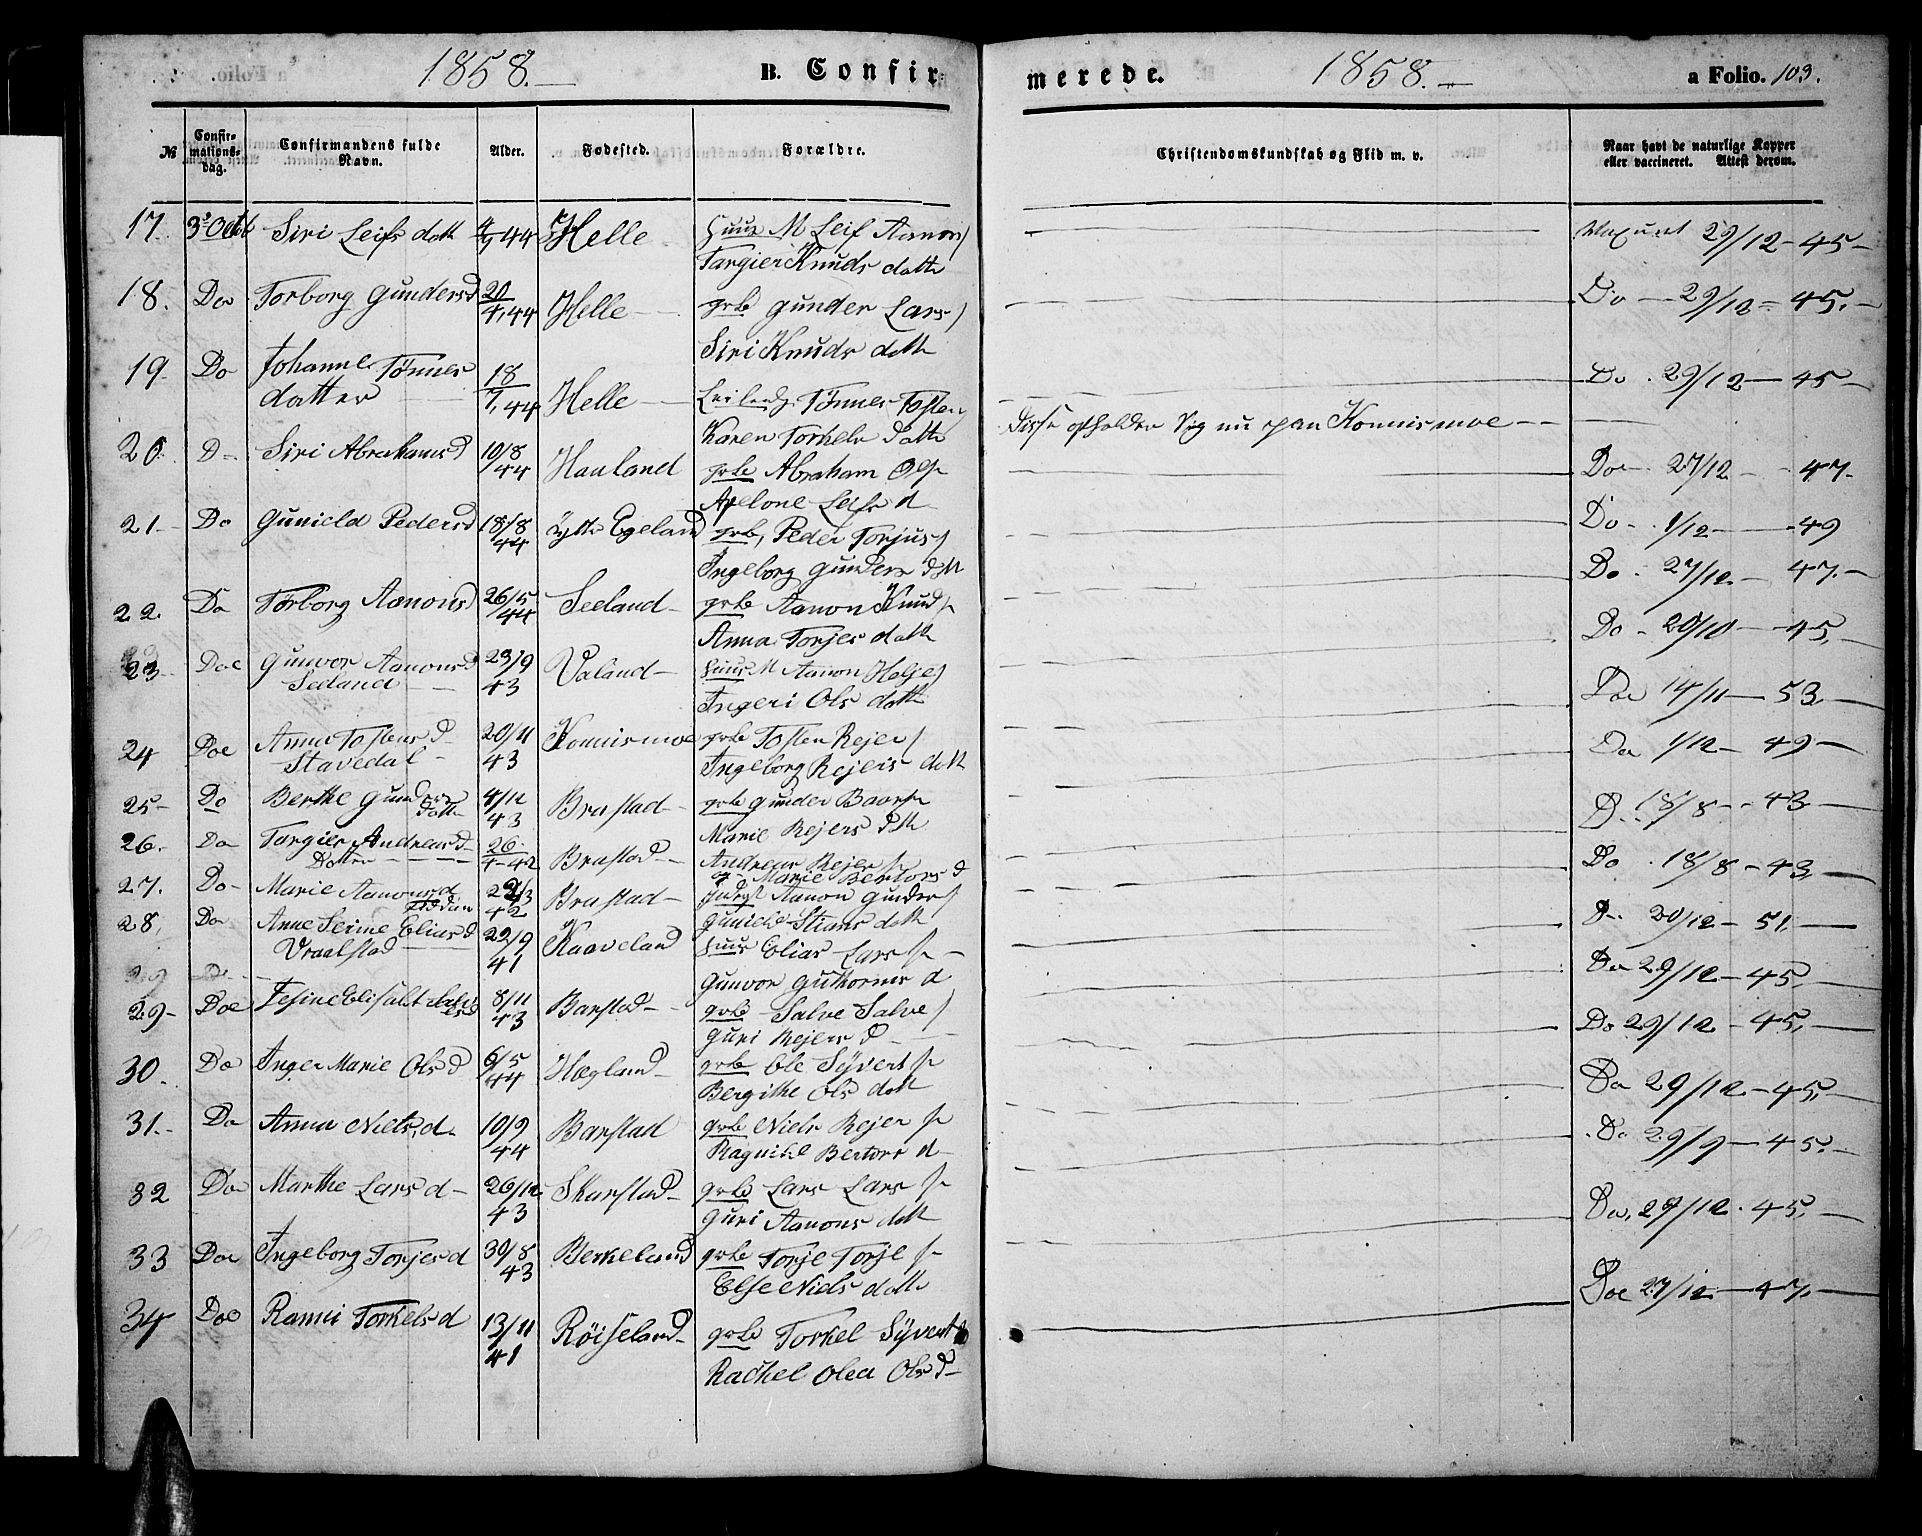 1858.—
B. Confir
merede.
1858.—
a Folio. 103.
№
Confir-
mations-
dag.
Confirmandens fulde
Navn.
Alder.
Fødested.
Forældre.
Christendomskundskab og Flid m. v.
Naar havt de naturlige Kopper
eller vaccineret. Attest derom.
17. Siri Leifs datt 44 Helle M Leif Aanons
Targier Knuds datte
29/12 - 45 -
18. Do Torborg Gundersd 20/4, 44 Helle — grb Gunder Lars
Siri Knuds datt
Do — 29/12 - 45. -
19. Do Johanne Tönnes
datter 18/7, 44 Helle — Leilend. Tönnes Tosten
Karen Torkels datte
Do . 29/12 — 45 -
Disse opholder sig nu paa Konnismoe - -
20. D- Siri Abrahamsd 10/8 44 Hauland grb Abraham Ols
Apelone Leifs d
Do - 27/12 - - 47.
21- Do Gunield Pedersd 18/8 44 Ytte Egeland grb, Peder Torjus
Ingeborg Gunders datt
Do - . 1/12 — -49
22. Do Torborg Aanonsd 26/5 44 Seeland - grb Aanon Knuds
Anna Torjes datt
Do . 27/12 - 47. -
23 Do Gunvor Aanonsd
Seeland — 23/9 43 Valand - Huus M Aanon Helje
Ingeri Ols datte
Do - 20/10 — 45,
24 Do Anna Tostens d
Stavedal - 20/11 43 Konnismoe grb Tosten Rejer
Ingeborg Rejers datt
Do 14/11 — 53
25- Do Berthe Gunders
datte 4/12 43 Brastad - grb Gunder Baars
Marie Rejers datt
Do 1/12 - 49 -
26. Do Targier Andreas
Datter 26/4 - 42 Brastad - Andreas Rejer
og Marie Bertors d
D . 18/8 - - 43
27. Do - Marie Aanonsd 42 Brastad - Aanon Gunder
Gunield Stians datt
Do . 18/8 - 43
28, Do Anne Serine Eliasd
Vraalstad 22/9 41 Kaaveland Huus Elias Lars
Gunvor Guthorms d
D 30/12 - 51.
29- Do 8/11 43 Barstad - grb - Salve Salve
Guri Rejers d
Do 29/12 - 45.
Do 29/12 - 45,
30. Do Inger Marie Ols d 6/5 44 Hægland - grb Ole Syvert
Bergithe Ols datt
Do 29/12 - 45,
31. Do Anna Niels, d. 10/9 44 Barstad grb Niels Rejer
Ragnild Bertors d
Do 29/9 - 45. -
32 Do Marthe Lars d - 26/12 43 Skarstad - grb Lars Lars
Guri Aanons datt
Do, 29/12 . 45,
33 Do Ingeborg Torjes d 30/8 43 Birkeland grb Torje Torje
Else Niels datte
34 Do Ranni Torkels d 13/11 41 Röiseland - grb Torkel Syvert
Rachel Olea Ols d -
Do 27/12 — 47. -